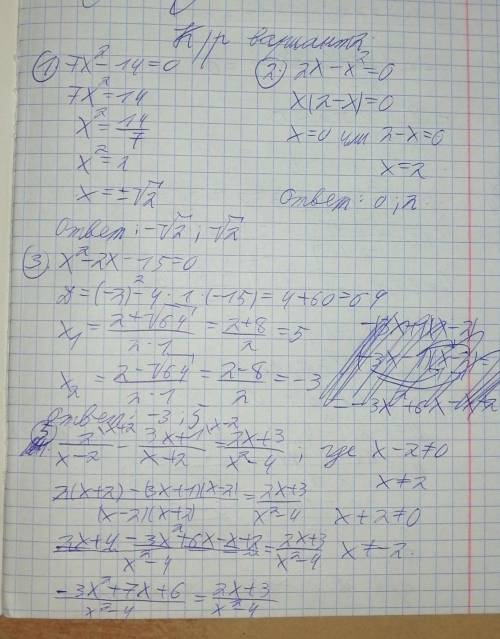 К/р вариант 2.
① 7x² - 14 = 0
7x² = 14
x² = 14/7
x² = 2
x = ±√2
Ответ: -√2; √2
② 2x - x² = 0
x(2-x) = 0
x=0 или 2-x=0
x=2
Ответ: 0; 2
③ x² - 2x - 15 = 0
D = (-2)² - 4 · 1 · (-15) = 4 + 60 = 64
x₁ = (2+√64)/(2·1) = (2+8)/2 = 5
x₂ = (2-√64)/(2·1) = (2-8)/2 = -3
Ответ: -3; 5
5 2/(x-2) - (3x+1)/(x+2) = (2x+3)/(x²-4), где x-2≠0
x≠2
(2(x+2) - (3x+1)(x-2))/((x-2)(x+2)) = (2x+3)/(x²-4)
x+2≠0
(2x+4 - 3x² + 6x - x + 2)/(x²-4) = (2x+3)/(x²-4) x≠-2.
(-3x² + 7x + 6)/(x²-4) = (2x+3)/(x²-4)